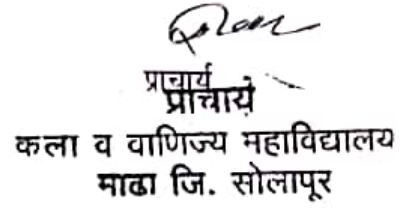 प्राचार्य
प्राचार्य
कला व वाणिज्य महाविद्यालय
माढा जि. सोलापूर